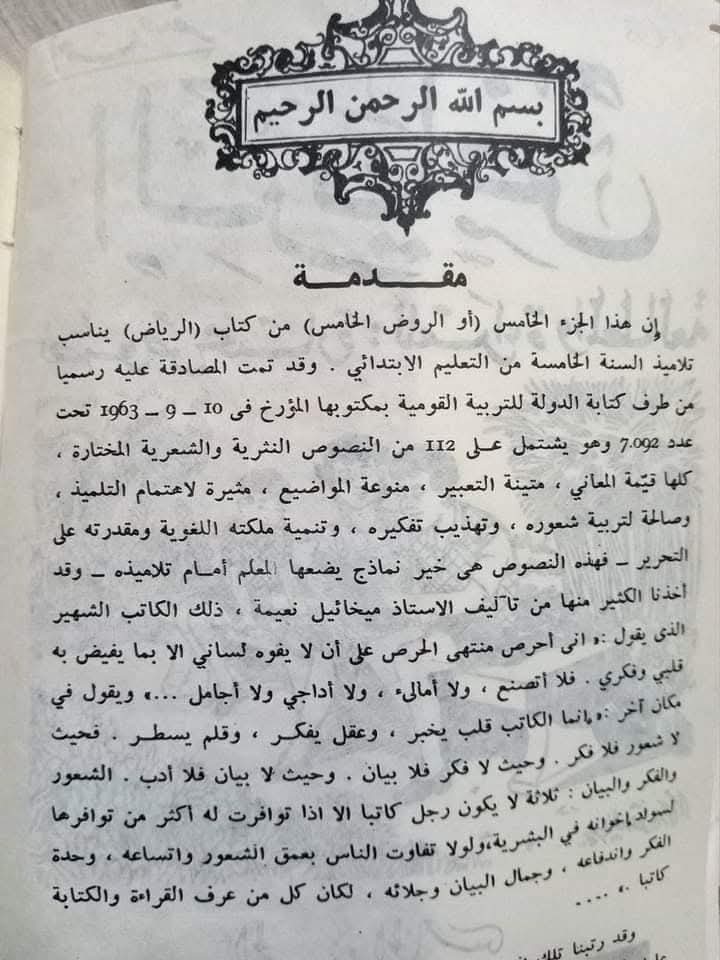 بسم الله الرحمن الرحيم
مقدمة
إن هذا الجزء الخامس (أو الروض الخامس) من كتاب (الرياض) يناسب
تلاميذ السنة الخامسة من التعليم الابتدائي . وقد تمت المصادقة عليه رسميا
من طرف كتابة الدولة للتربية القومية بمكتوبها المؤرخ فى 10 – 9 – 1963 تحت
عدد 7.092 وهو يشتمل على 112 من النصوص النثرية والشعرية المختارة ،
كلها قيّمة المعاني ، متينة التعبير ، منوعة المواضيع ، مثيرة لاهتمام التلميذ ،
وصالحة لتربية شعوره ، وتهذيب تفكيره ، وتنمية ملكته اللغوية ومقدرته على
التحرير – فهذه النصوص هى خير نماذج يضعها المعلم أمام تلاميذه – وقد
أخذنا الكثير منها من تآليف الاستاذ ميخائيل نعيمة ، ذلك الكاتب الشهير
الذى يقول : « انى أحرص منتهى الحرص على أن لا يفوه لساني الا بما يفيض به
قلبي وفكري . فلا أتصنع ، ولا أمالىء ، ولا أداجي ولا أجامل ...» ويقول في
مكان آخر : « إنما الكاتب قلب يخبر ، وعقل يفكر ، وقلم يسطر . فحيث
لا شعور فلا فكر . وحيث لا فكر فلا بيان . وحيث لا بيان فلا أدب . الشعور
والفكر والبيان : ثلاثة لا يكون رجل كاتبا الا اذا توافرت له أكثر من توافرها
لسواد إخوانه في البشرية،ولولا تفاوت الناس بعمق الشعور واتساعه ، وحدة
الفكر واندفاعه ، وجمال البيان وجلائه ، لكان كل من عرف القراءة والكتابة
كاتبا .» ....
وقد رتبنا تلك